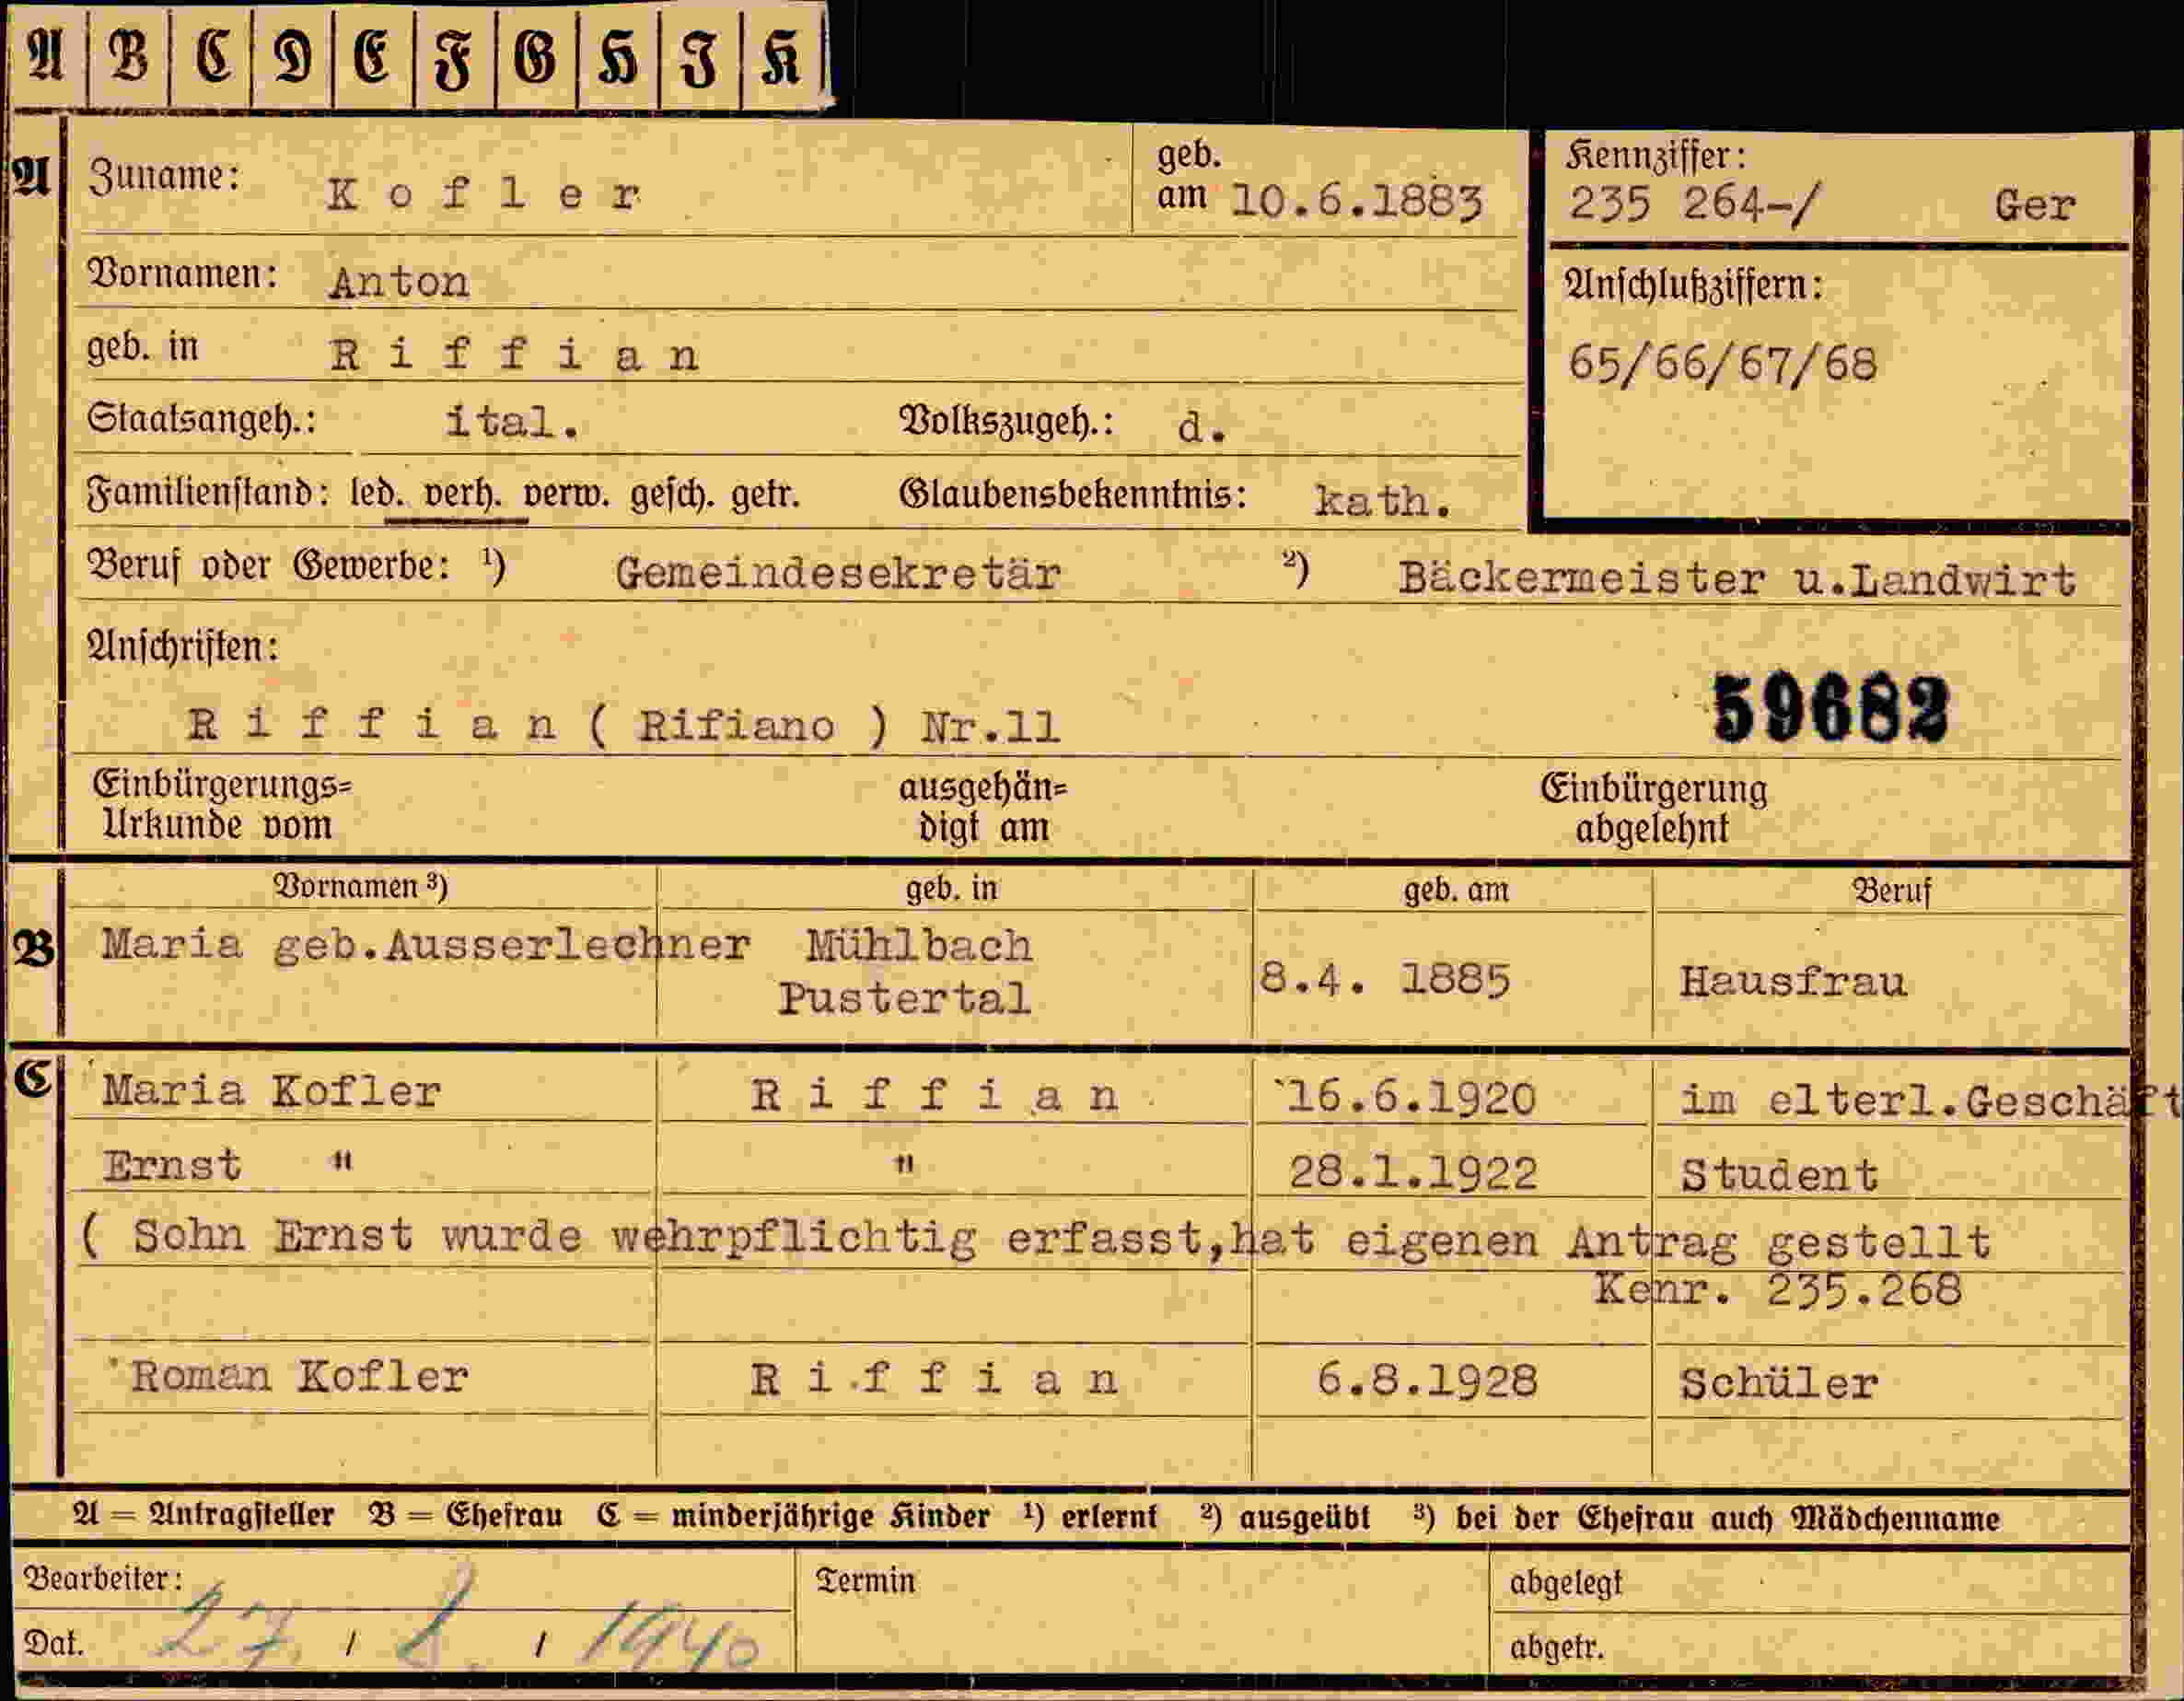 A B C D E F G H I K
A Zuname: Kofler geb. am 10.6.1883
Kennziffer:
235 264-/ Ger
Vornamen: Anton
Anschlußziffern:
geb. in Riffian
65/66/67/68
Staatsangeh.: ital. Volkszugeh.: d.
Familienstand: led. verh. verw. gesch. getr. Glaubensbekenntnis: kath.
Beruf oder Gewerbe: ¹) Gemeindesekretär ²) Bäckermeister u.Landwirt
Anschriften:
Riffian ( Rifiano ) Nr.11
59682
Einbürgerungs= ausgehän= Einbürgerung
Urkunde vom digt am abgelehnt
Vornamen ³) geb. in geb. am Beruf
B Maria geb.Ausserlechner Mühlbach
Pustertal 8.4. 1885 Hausfrau
C Maria Kofler Riffian 16.6.1920 im elterl.Geschäft
Ernst " " 28.1.1922 Student
( Sohn Ernst wurde wehrpflichtig erfasst,hat eigenen Antrag gestellt
Kenr. 235.268
Roman Kofler Riffian 6.8.1928 Schüler
A = Antragsteller B = Ehefrau C = minderjährige Kinder ¹) erlernt ²) ausgeübt ³) bei der Ehefrau auch Mädchenname
Bearbeiter: Termin abgelegt
Dat. 27. / / 1940 abgetr.